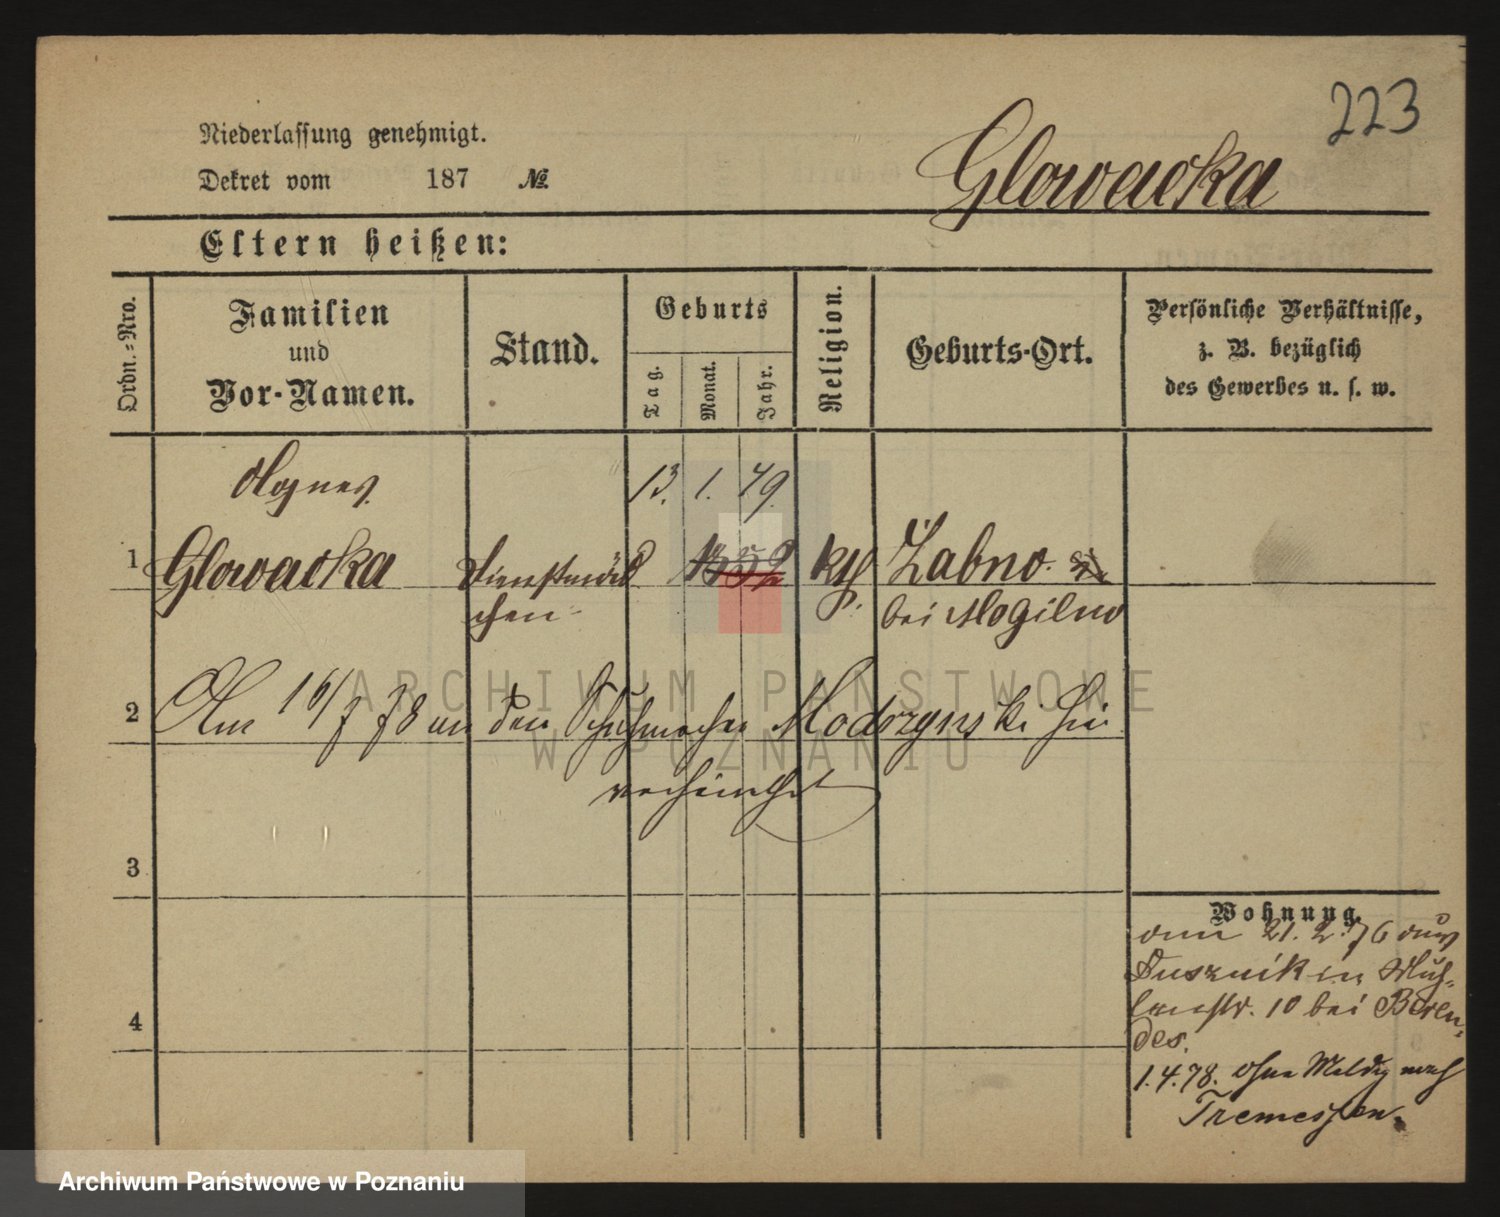 223
Niederlassung genehmigt.
Dekret vom 187 №
Glowacka
Eltern heißen:
Ordn.-Nro.
Familien
und
Vor-Namen.
Stand.
Geburts
Tag.
Monat.
Jahr.
Religion.
Geburts-Ort.
Persönliche Verhältnisse,
z. B. bezüglich
des Gewerbes u. s. w.
Agnes
13. 1. 49.
1 Glowacka Dienstmäd 1852 kth Żabno
chen bei Mogilno
2 Am 16/7 78 an den Schuhmacher Modrzynski hier
verheirathet
3
4
Wohnung.
am 21. 2. 76 aus
Dusznik in Müh-
lenstr. 10 bei Beren-
des.
1.4.78. ohne Meldg nach
Tremessen.
ARCHIWUM PAŃSTWOWE
W POZNANIU
Archiwum Państwowe w Poznaniu